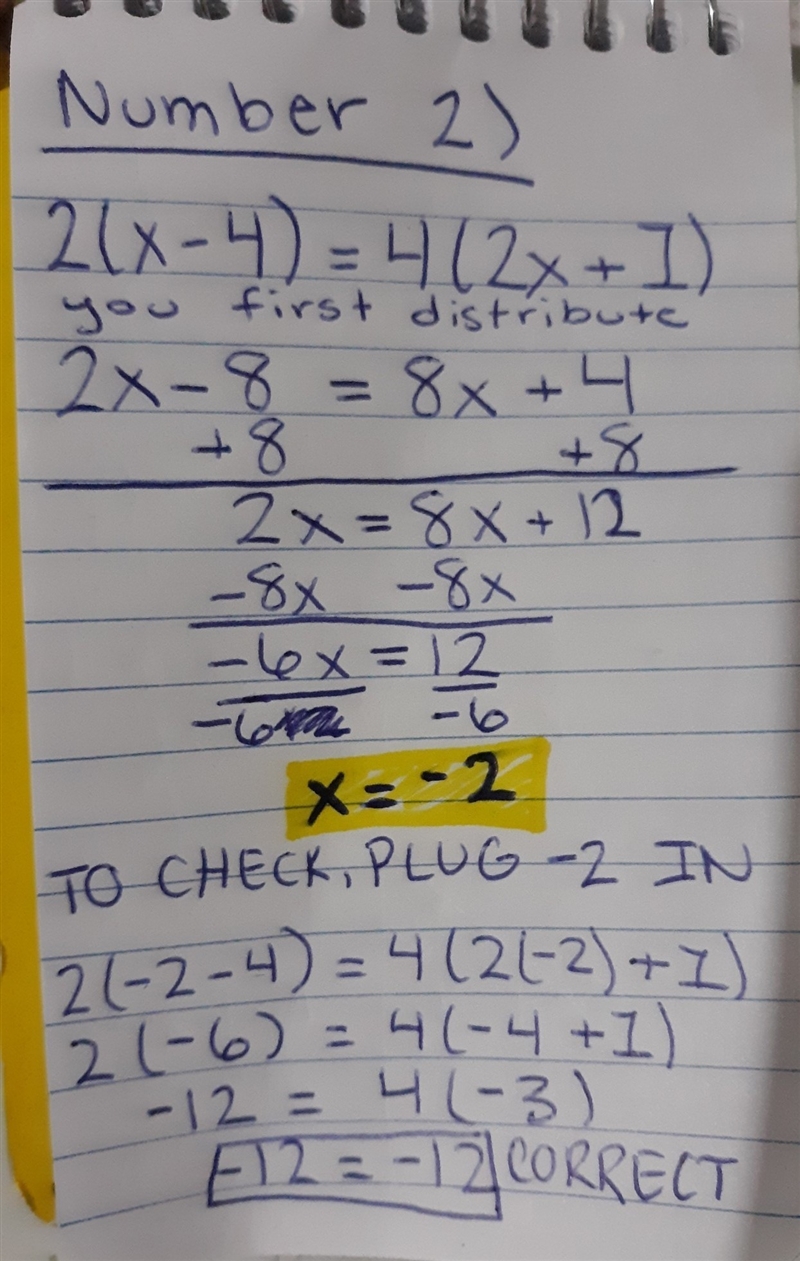 Number 2)
2(x-4) = 4(2x+1)
you first distribute
2x-8 = 8x+4
+8 +8
2x = 8x + 12
-8x -8x
-6x = 12
-6 -6
x = -2
TO CHECK, PLUG -2 IN
2(-2-4) = 4(2(-2)+1)
2(-6) = 4(-4+1)
-12 = 4(-3)
-12 = -12 CORRECT